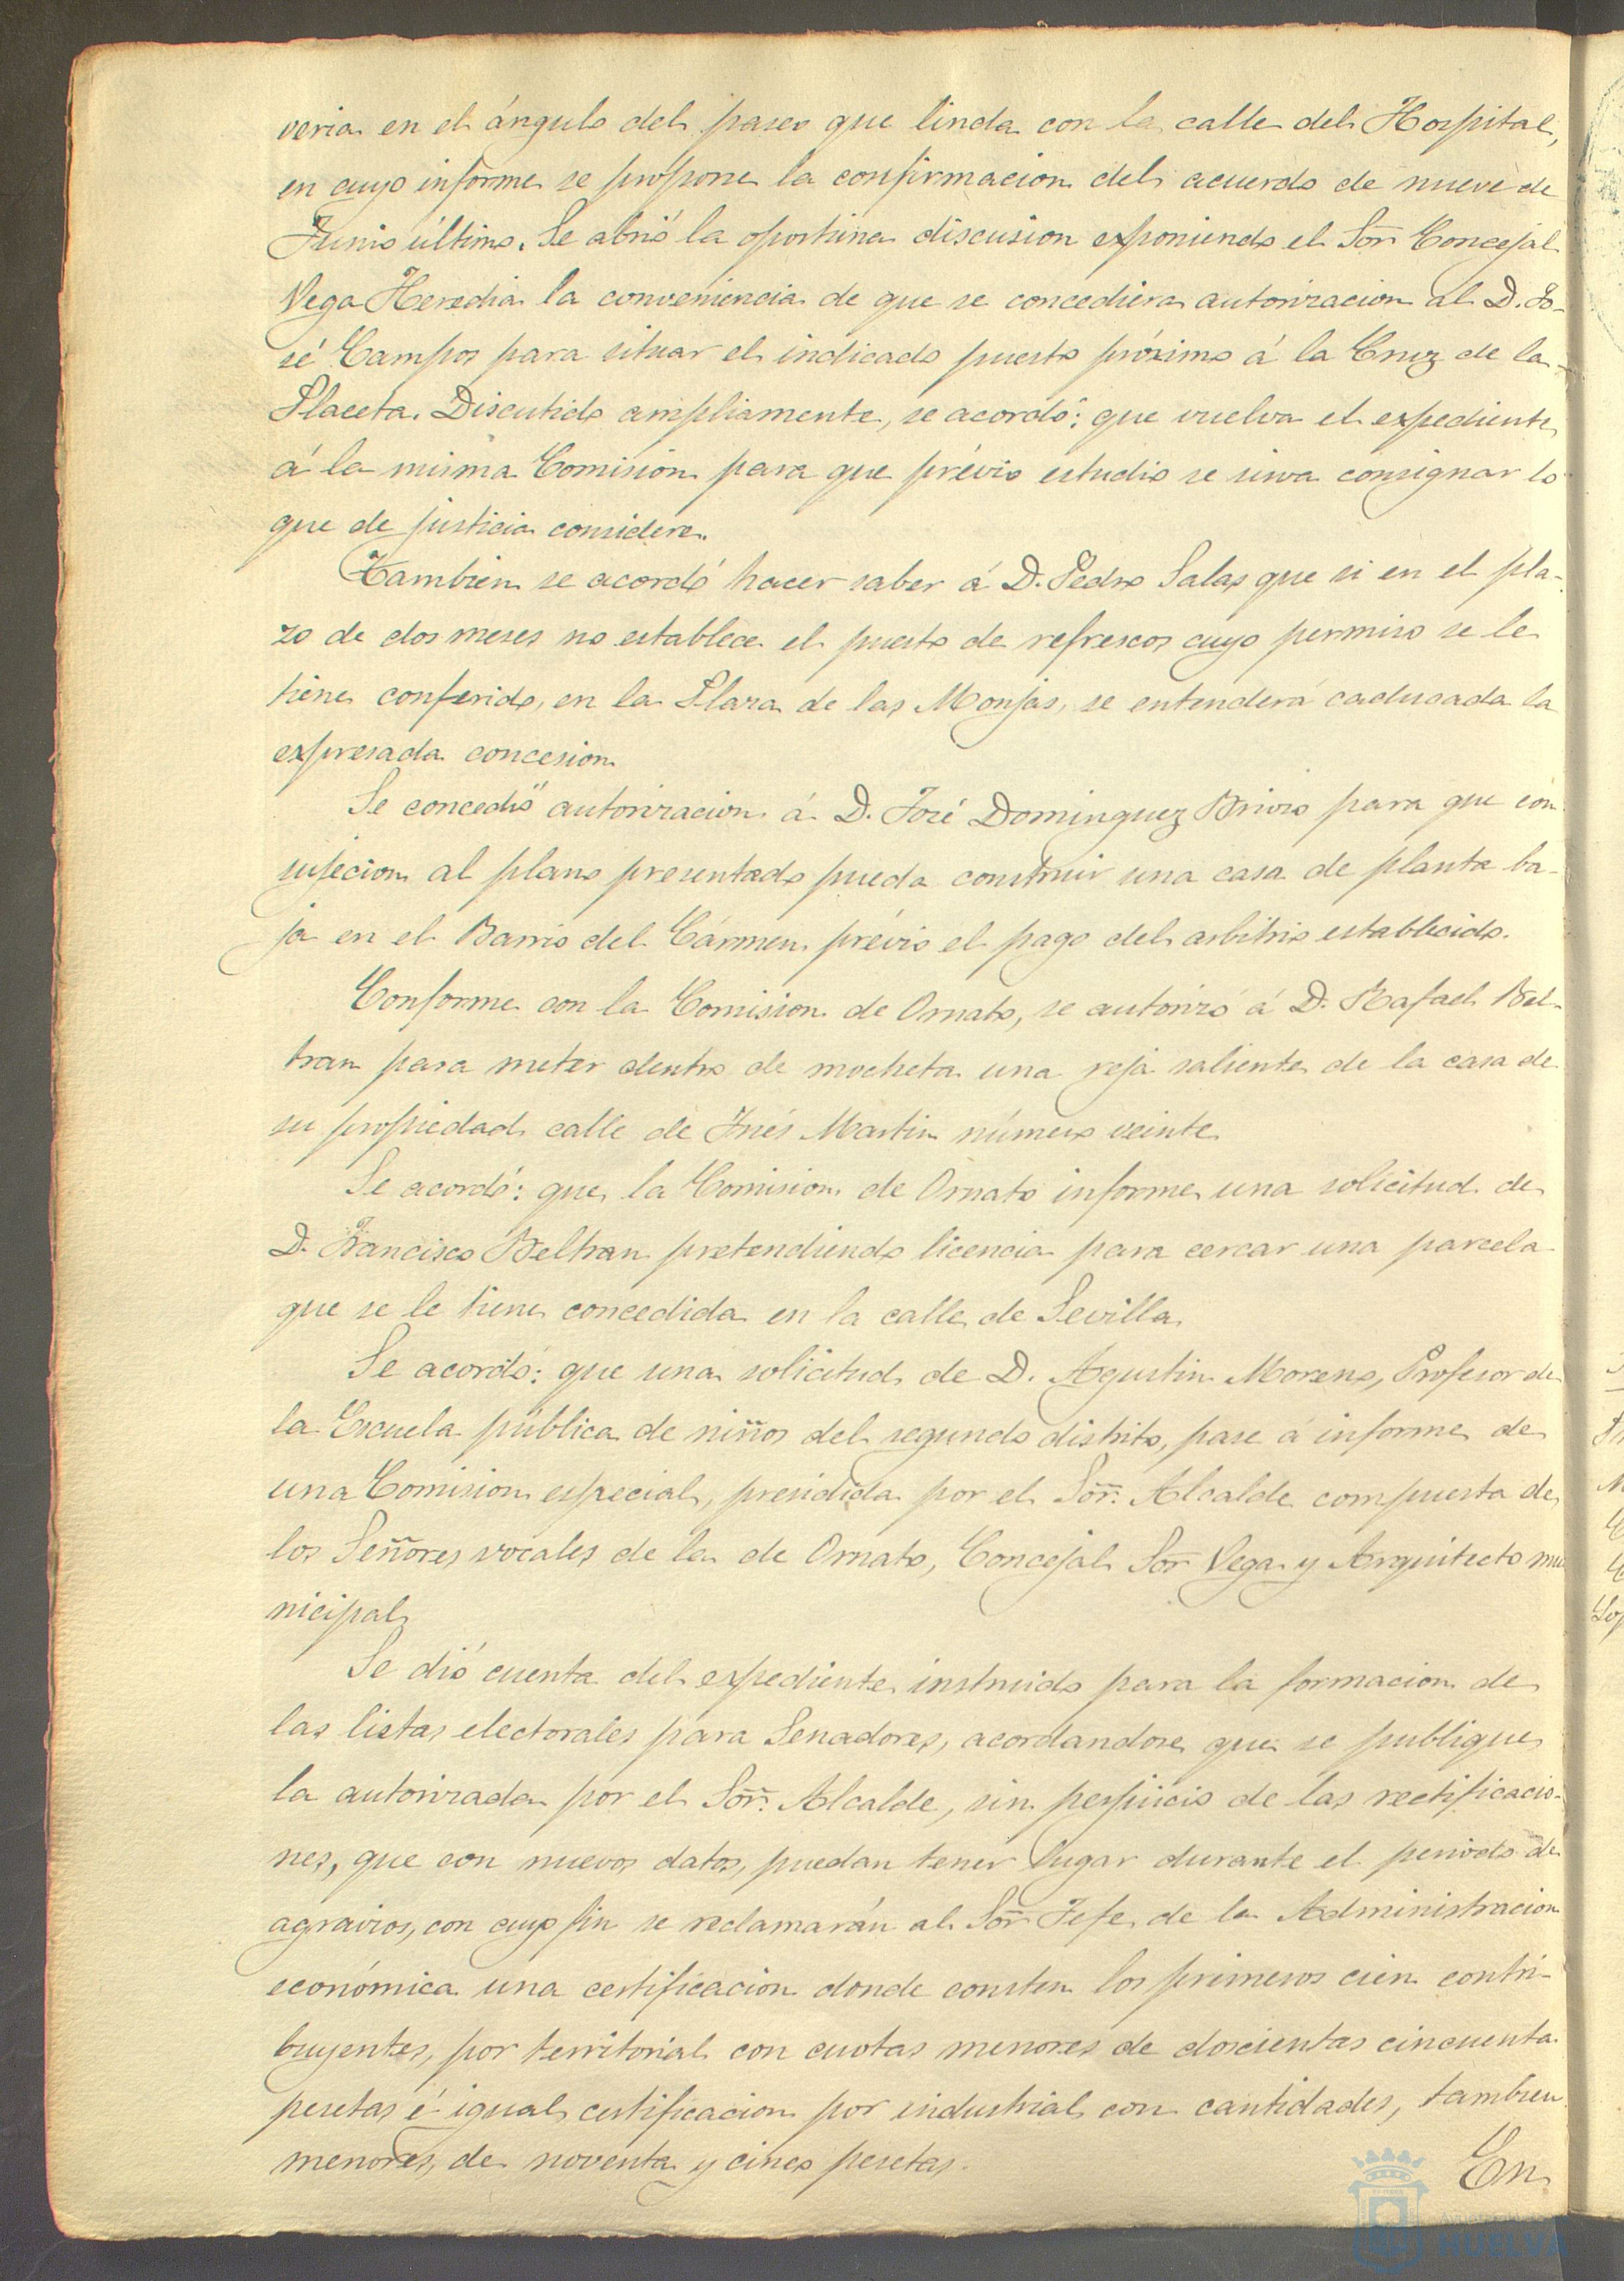 veria en el ángulo del paseo que linda con la calle del Hospital,
en cuyo informe se propone la confirmacion del acuerdo de nueve de
Junio último. Se abrió la oportuna discusion exponiendo el Sor Concejal
Vega Heredia la conveniencia de que se concediera autorizacion al D. Jo-
sé Campos para situar el indicado puesto próximo á la Cruz de la
Placeta. Discutido ampliamente, se acordó: que vuelva el expediente
á la misma Comisión para que prévio estudio se sirva consignar lo
que de justicia considere.
Tambien se acordó hacer saber á D. Pedro Salas que si en el pla-
zo de dos meses no establece el puesto de refrescos cuyo permiso se le
tiene conferido, en la Plaza de las Monjas, se entenderá caducada la
expresada concesion
Se concedió autorizacion á D. José Dominguez Brioso para que con
sujecion al plano presentado pueda construir una casa de planta ba-
ja en el Barrio del Cármen prévio el pago del arbitrio establecido.
Conforme con la Comision de Ornato, se autorizó á D. Rafael Bel-
tran para meter dentro de mocheta una reja saliente de la casa de
su propiedad calle de Inés Martin número veinte
Se acordó: que la Comision de Ornato informe una solicitud de
D. Francisco Beltran pretendiendo licencia para cercar una parcela
que se le tiene concedida en la calle de Sevilla
Se acordó: que una solicitud de D. Agustin Moreno, Profesor de
la Escuela pública de niños del segundo distrito, pase á informe de
una Comision especial, presidida por el Sor. Alcalde compuesta de
los Señores vocales de la de Ornato, Concejal Sor Vega y Arquitecto mu
nicipal
Se dió cuenta del expediente instruido para la formacion de
las listas electorales para Senadores, acordandose que se publique
la autorizada por el Sor. Alcalde, sin perjuicio de las rectificacio-
nes, que con nuevos datos, puedan tener lugar durante el periodo de
agravios, con cuyo fin se reclamarán al Sor Jefe de la Administracion
económica una certificacion donde consten los primeros cien contri-
buyentes, por territorial con cuotas menores de doscientas cincuenta
pesetas é igual certificacion por industrial con cantidades, tambien
menores, de noventa y cinco pesetas.
En
HUELVA